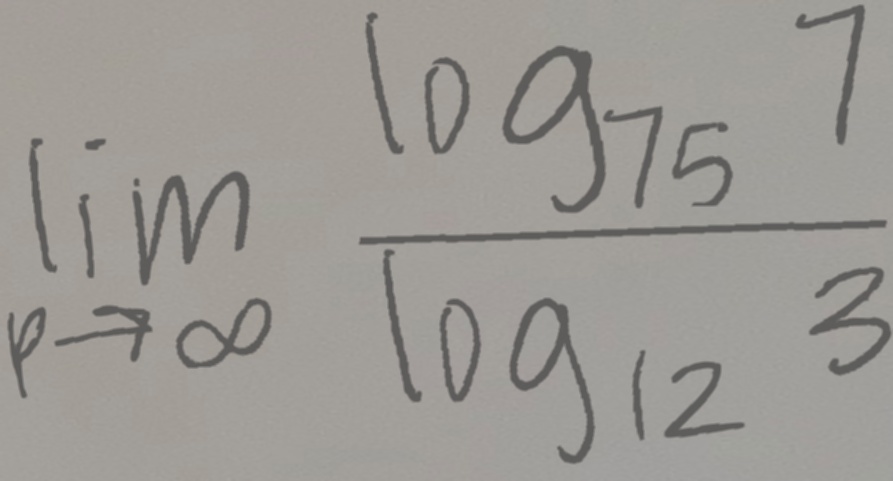 \lim_{p \to \infty} \frac{\log_{75} 7}{\log_{12} 3}